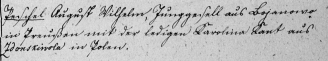 Peschel August Wilhelm, Junggesell aus Bojanowo
in Preußen mit der ledigen Karolina Kant aus
Końskiwola in Polen.